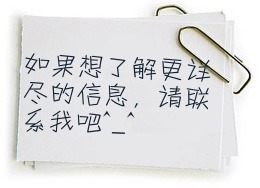 如果想了解更详
尽的信息，请联
系我吧^_^